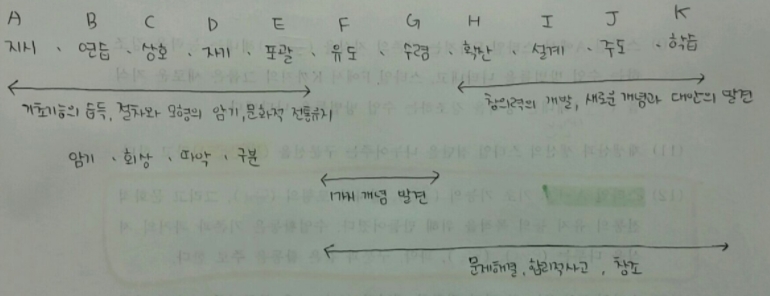 A B C D E F G H I J K
지시 · 연습 · 상호 · 자기 · 포괄 · 유도 · 수렴 · 확산 · 설계 · 주도 · 학습
기초기능의 습득, 절차와 모형의 암기, 문화적 전통유지
창의력의 개발, 새로운 개념과 대안의 발견
암기 · 회상 · 파악 · 구분
1가지 개념 발견
문제해결, 합리적사고, 창조